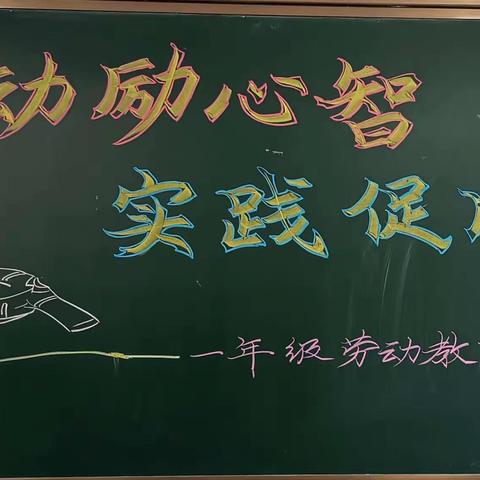 动励心智
实践促
一年级劳动教